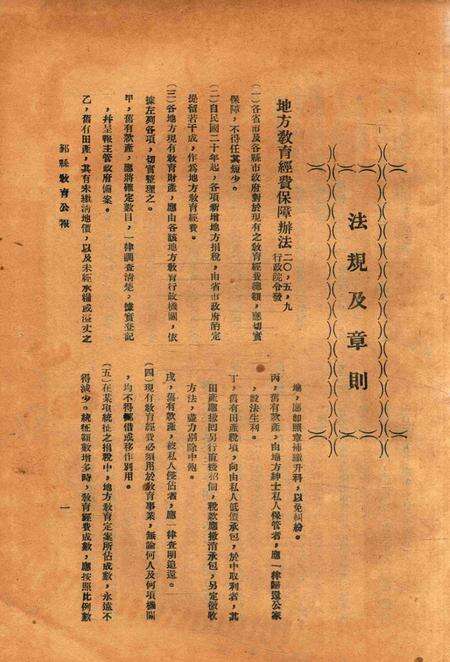 法規及章則
地方教育經費保障辦法 二〇,五,九 行政院令發
(一)各省市及各縣市政府對於現有之教育經費總額,應切實
保障,不得任其短少。
(二)自民國二十年起,各項新增地方捐稅,由省市政府酌定
提留若干成,作為地方教育經費。
(三)各地方現有教育財產,應由各該地方教育行政機關,依
據左列各項,切實整理之。
甲,舊有款產,應將確定數目,一律調查清楚,據實登記
,幷呈報主管政府備案。
乙,舊有田產,其有未繳清地價,以及未經水繪或淤丈之
地,應即照章補繳升科,以免糾紛。
丙,舊有款產,由地方紳士私人保管者,應一律歸還公家
,設法生利。
丁,舊有田產稅項,向由私人低價承包,於中取利者,其
田產應投標另行直接招佃,稅款應撤消承包,另定徵收
方法,盡力剔除中飽。
戊,舊有款產,被私人侵佔者,應一律查明追還。
(四)現有教育經費必須用於教育事業,無論何人及何項機關
,均不得挪借或移作別用。
(五)在某項統征之捐稅中,地方教育定案所佔成數,永遠不
得減少。統征額數增多時,教育經費成數,應按照比例數
郢縣教育公報
一